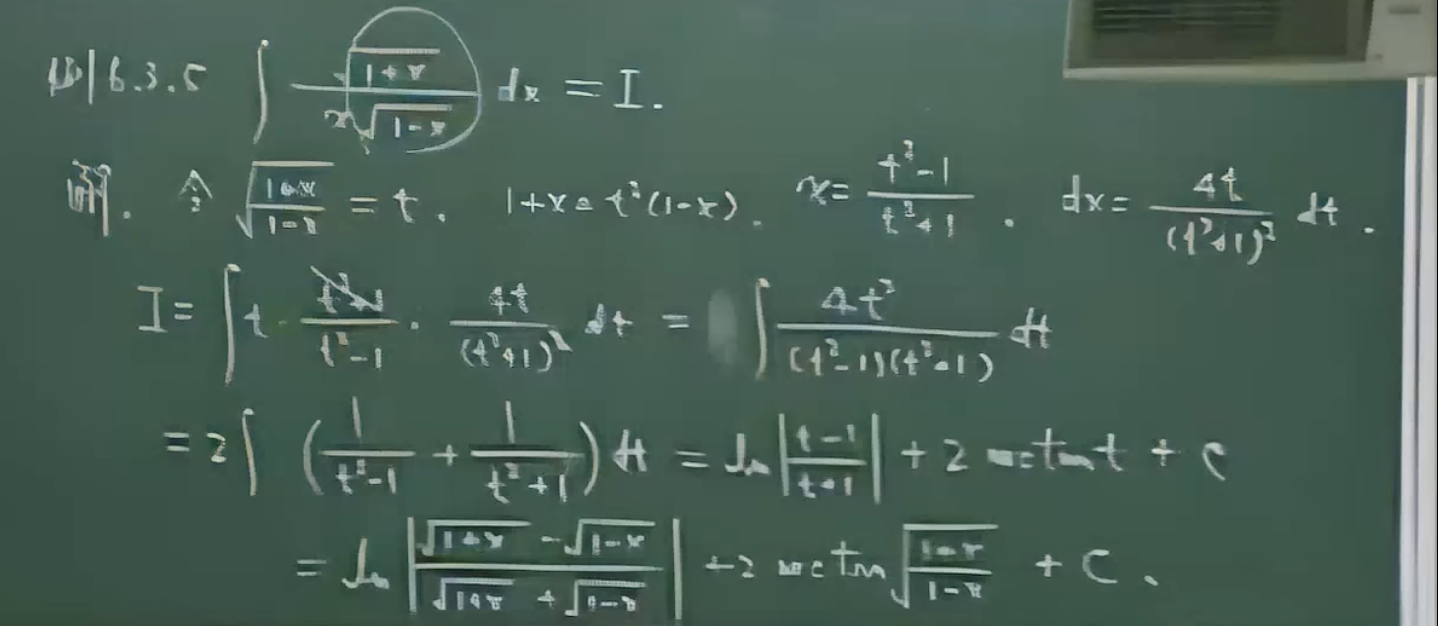 例6.3.5 ∫ √(1+x) / (x√(1-x)) dx = I.
解. 令 √((1+x)/(1-x)) = t. 1+x = t²(1-x). x = (t²-1)/(t²+1). dx = 4t/(t²+1)² dt.
I = ∫ t · (t²+1)/(t²-1) · 4t/(t²+1)² dt = ∫ 4t²/((t²-1)(t²+1)) dt
= 2∫ (1/(t²-1) + 1/(t²+1)) dt = ln |(t-1)/(t+1)| + 2 arctan t + C
= ln |(√(1+x) - √(1-x))/(√(1+x) + √(1-x))| + 2 arctan √((1+x)/(1-x)) + C.